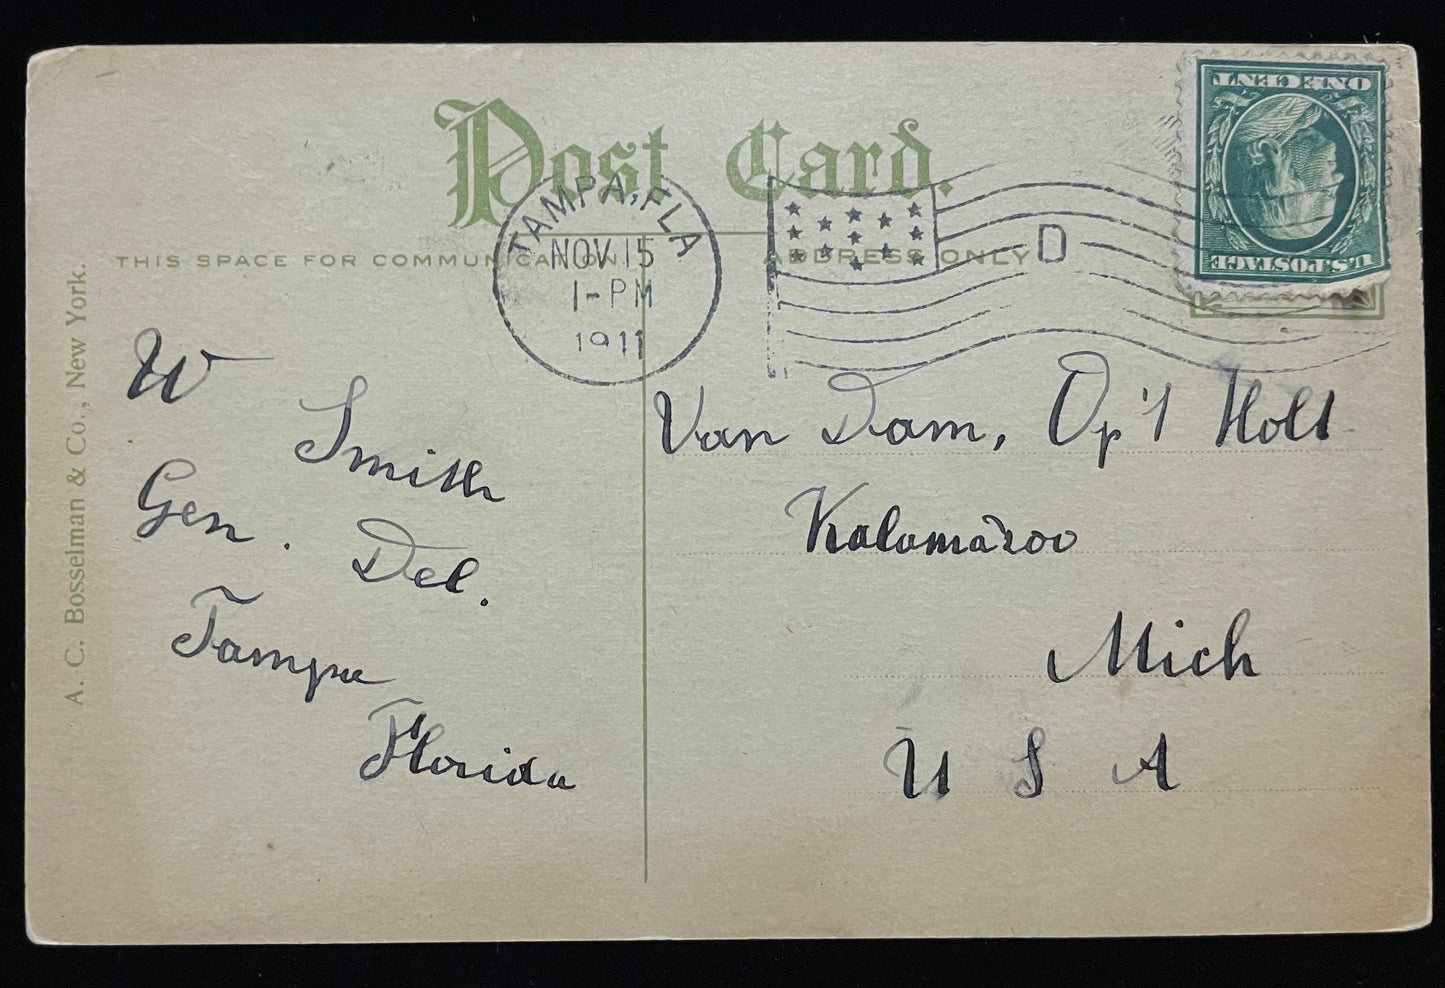 Post Card.
THIS SPACE FOR COMMUNICATION
ADDRESS ONLY
TAMPA, FLA
NOV 15
1-PM
1911
D
ONE CENT
U.S. POSTAGE
A. C. Bosselman & Co., New York.
W
Smith
Gen. Del.
Tampa
Florida
Van Dam, Op't Holt
Kalamazoo
Mich
U S A